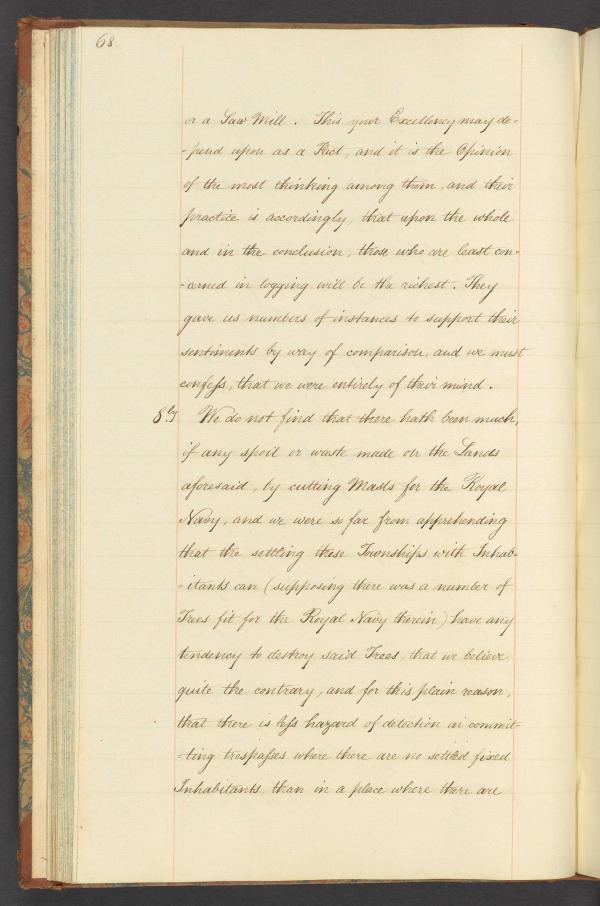 68
or a Saw Mill. This your Excellency may de-
-pend upon as a Fact, and it is the Opinion
of the most thinking among them, and their
practice is accordingly, that upon the whole
and in the conclusion, those who are least con-
-cerned in logging will be the richest. They
gave us numbers of instances to support their
sentiments by way of comparison, and we must
confess, that we were entirely of their mind.
8ly We do not find that there hath been much,
if any spoil or waste made on the Lands
aforesaid, by cutting Masts for the Royal
Navy, and we were so far from apprehending
that the settling these Townships with Inhab-
-itants can (supposing there was a number of
Trees fit for the Royal Navy therein) have any
tendency to destroy said Trees, that we believe
quite the contrary, and for this plain reason,
that there is less hazard of detection in commit-
-ting trespasses where there are no settled fixed
Inhabitants, than in a place where there are